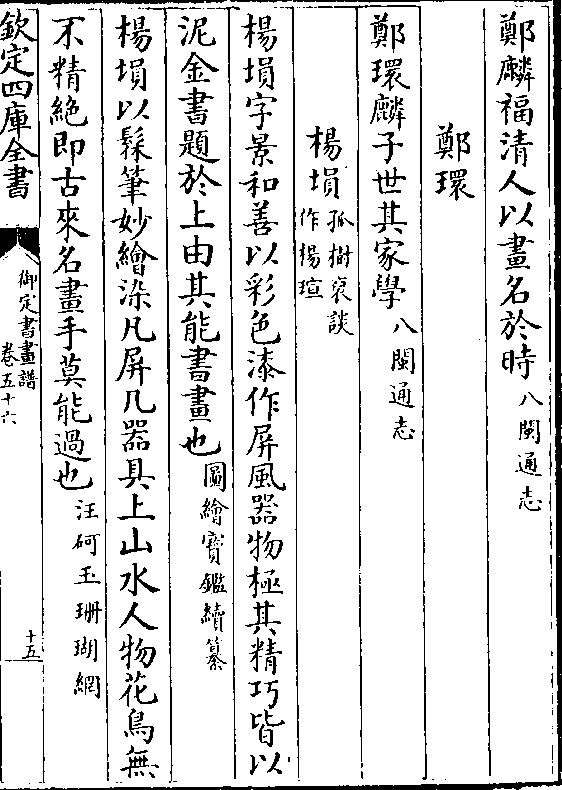 鄭麟福清人以畫名於時八閩通志
鄭環
鄭環麟子世其家學八閩通志
楊塤孤樹裒談作楊瑄
楊塤字景和善以彩色漆作屏風器物極其精巧皆以
泥金書題於上由其能書畫也圖繪寶鑑續纂
楊塤以髹筆妙繪染凡屏几器具上山水人物花鳥無
不精絶即古來名畫手莫能過也汪砢玉珊瑚網
欽定四庫全書
御定書畫譜
卷五十六
十五